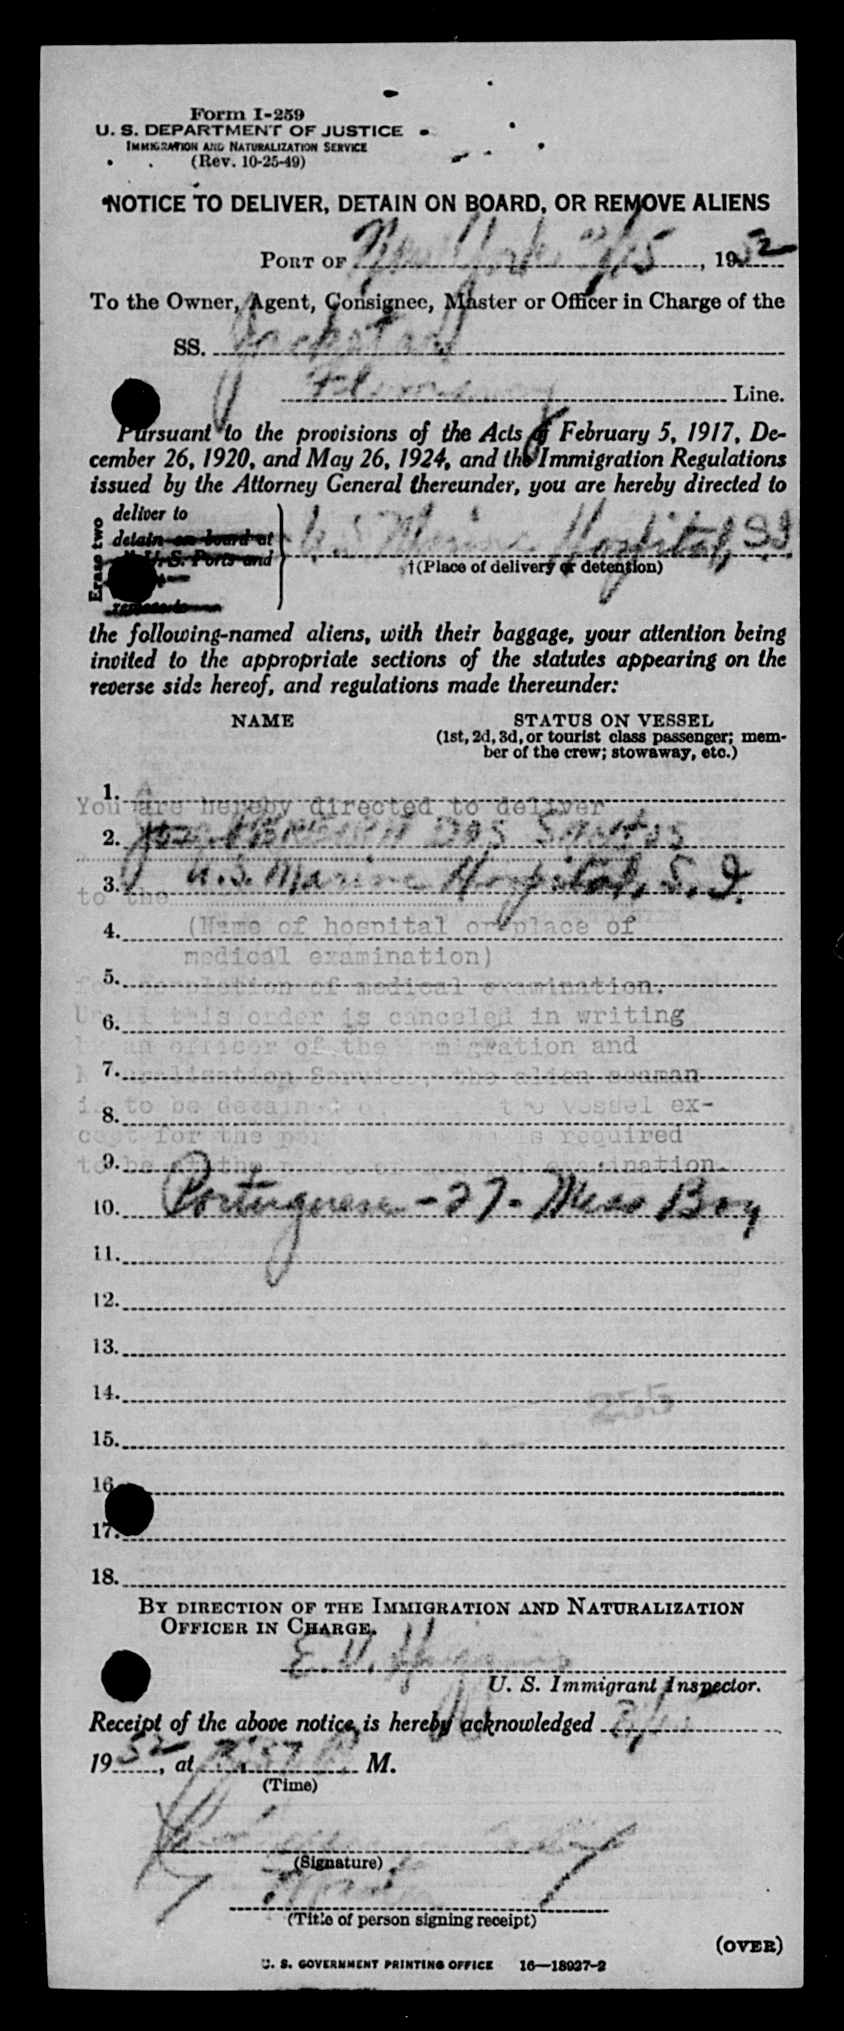 Form I-259
U. S. DEPARTMENT OF JUSTICE
IMMIGRATION AND NATURALIZATION SERVICE
(Rev. 10-25-49)
NOTICE TO DELIVER, DETAIN ON BOARD, OR REMOVE ALIENS
PORT OF New York 2/15, 1952
To the Owner, Agent, Consignee, Master or Officer in Charge of the
SS.
Line.
Pursuant to the provisions of the Acts of February 5, 1917, De-
cember 26, 1920, and May 26, 1924, and the Immigration Regulations
issued by the Attorney General thereunder, you are hereby directed to
Erase two
deliver to
detain on board at
U. S. Ports and
remove to
U.S. Marine Hospital, SI
†(Place of delivery or detention)
the following-named aliens, with their baggage, your attention being
invited to the appropriate sections of the statutes appearing on the
reverse side hereof, and regulations made thereunder:
NAME STATUS ON VESSEL
(1st, 2d, 3d, or tourist class passenger; mem-
ber of the crew; stowaway, etc.)
1.
You are hereby directed to deliver
2. DOS SANTOS
3. U.S. Marine Hospital, S. I.
to the
4. (Name of hospital or place of
medical examination)
5. for completion of medical examination.
6. Until this order is canceled in writing
by an officer of the Immigration and
7. Naturalization Service, the alien seaman
8. is to be detained on the vessel ex-
cept for the is required
9. to be at the examination.
10. Portuguese - 27 - Mess Boy
11.
12.
13.
14. 255
15.
16.
17.
18.
BY DIRECTION OF THE IMMIGRATION AND NATURALIZATION
OFFICER IN CHARGE.
E. V.
U. S. Immigrant Inspector.
Receipt of the above notice is hereby acknowledged
1952, at M.
(Time)
(Signature)
(Title of person signing receipt)
(OVER)
U. S. GOVERNMENT PRINTING OFFICE 16—18027-2